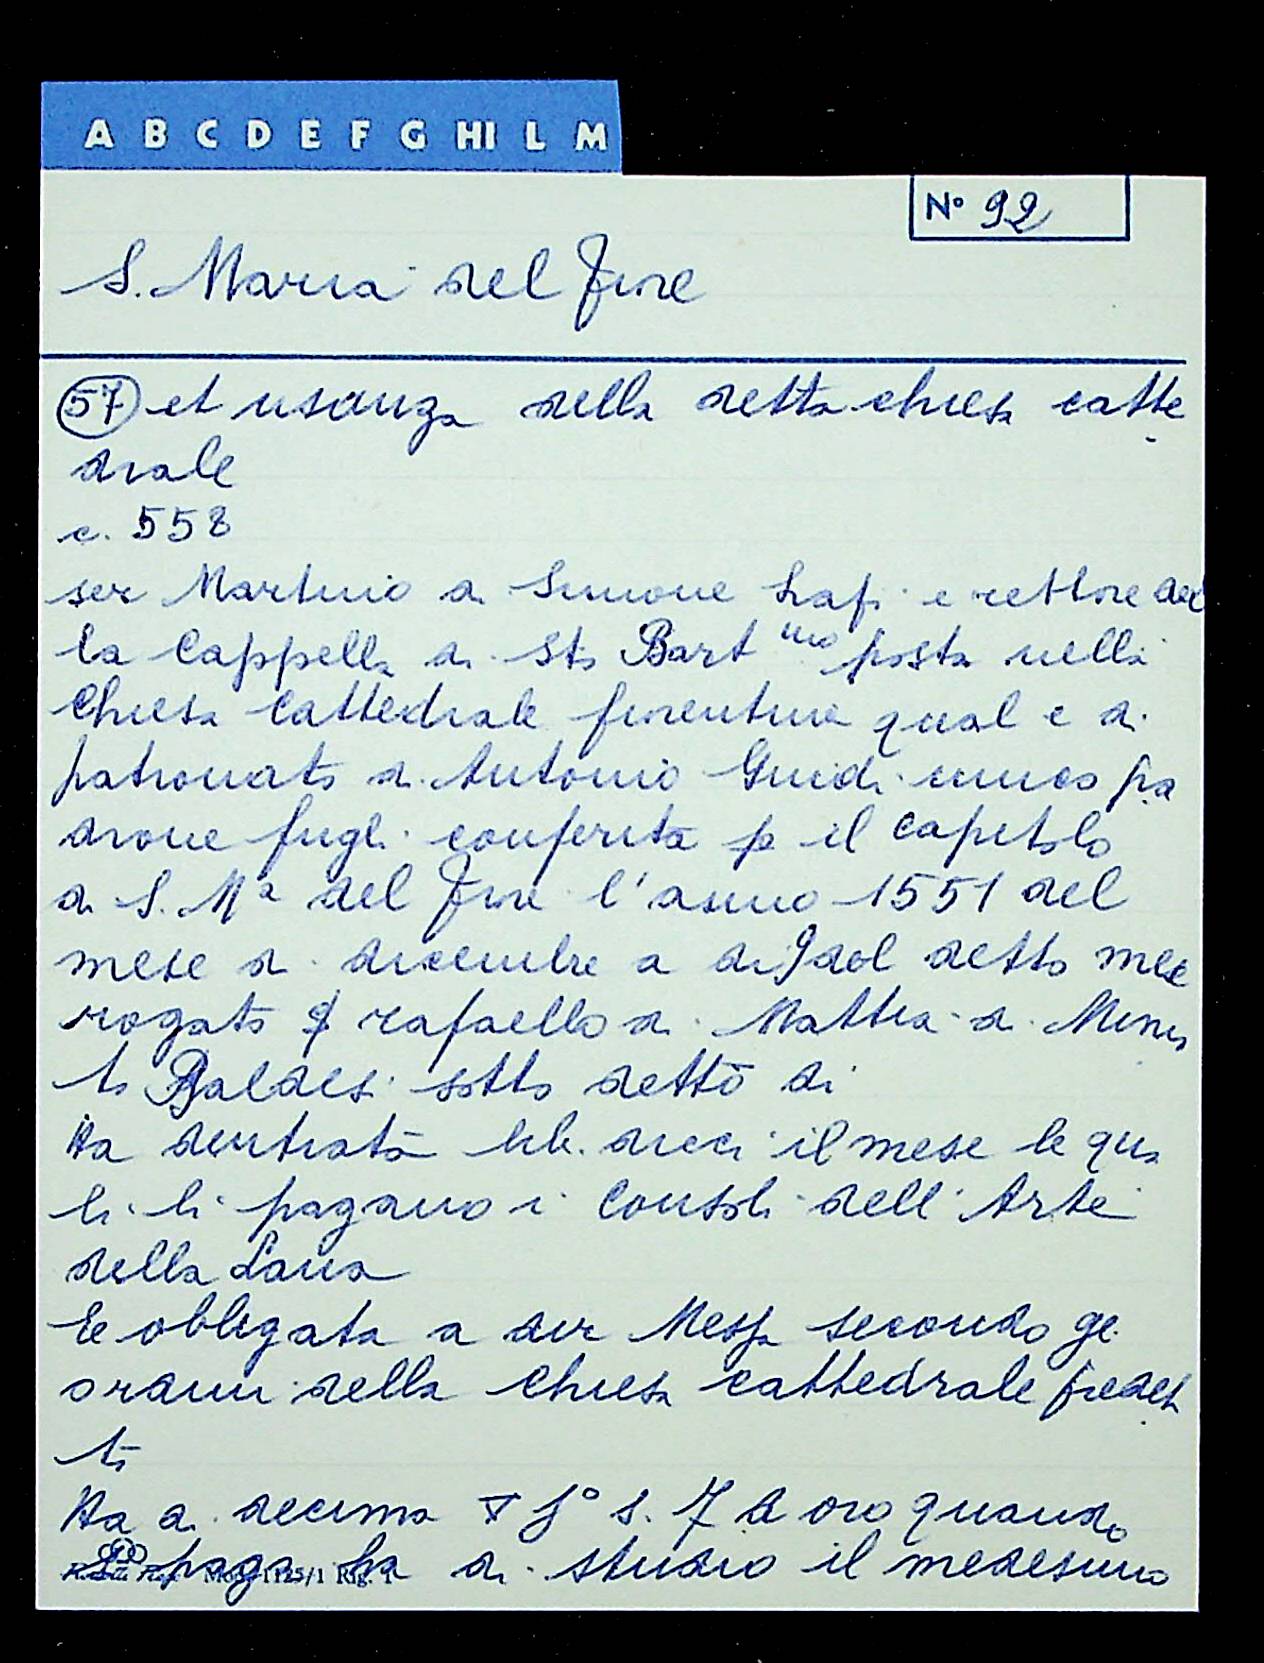 A B C D E F G HI L M
Nº 92
S. Maria del fiore
57 et usanza della detta chiesa catte
drale
c. 558
ser Martino di Simone Lapi e rettore del
la Cappella di Sto Bart mo posta nella
Chiesa Cattedrale fiorentina qual e di
patronato di Antonio Guidi unico pa
drone fugli conferita p il capitolo
di S. Mª del fiore l'anno 1551 del
mese di dicembre a di 9 del detto mese
rogato p rafaello di Mattia di Minia
to Baldesi sotto detto di
Ha dentrata lib. dieci il mese le qua
li li pagano i Consoli dell'Arte
della Lana
Ee obligata a dir Messa secondo gl
ordini della Chiesa cattedrale predet
ta
Ha di decima s. 7 d oro quando
si paga ha di studio il medesimo
Mod. 1125/1 Rig. 1